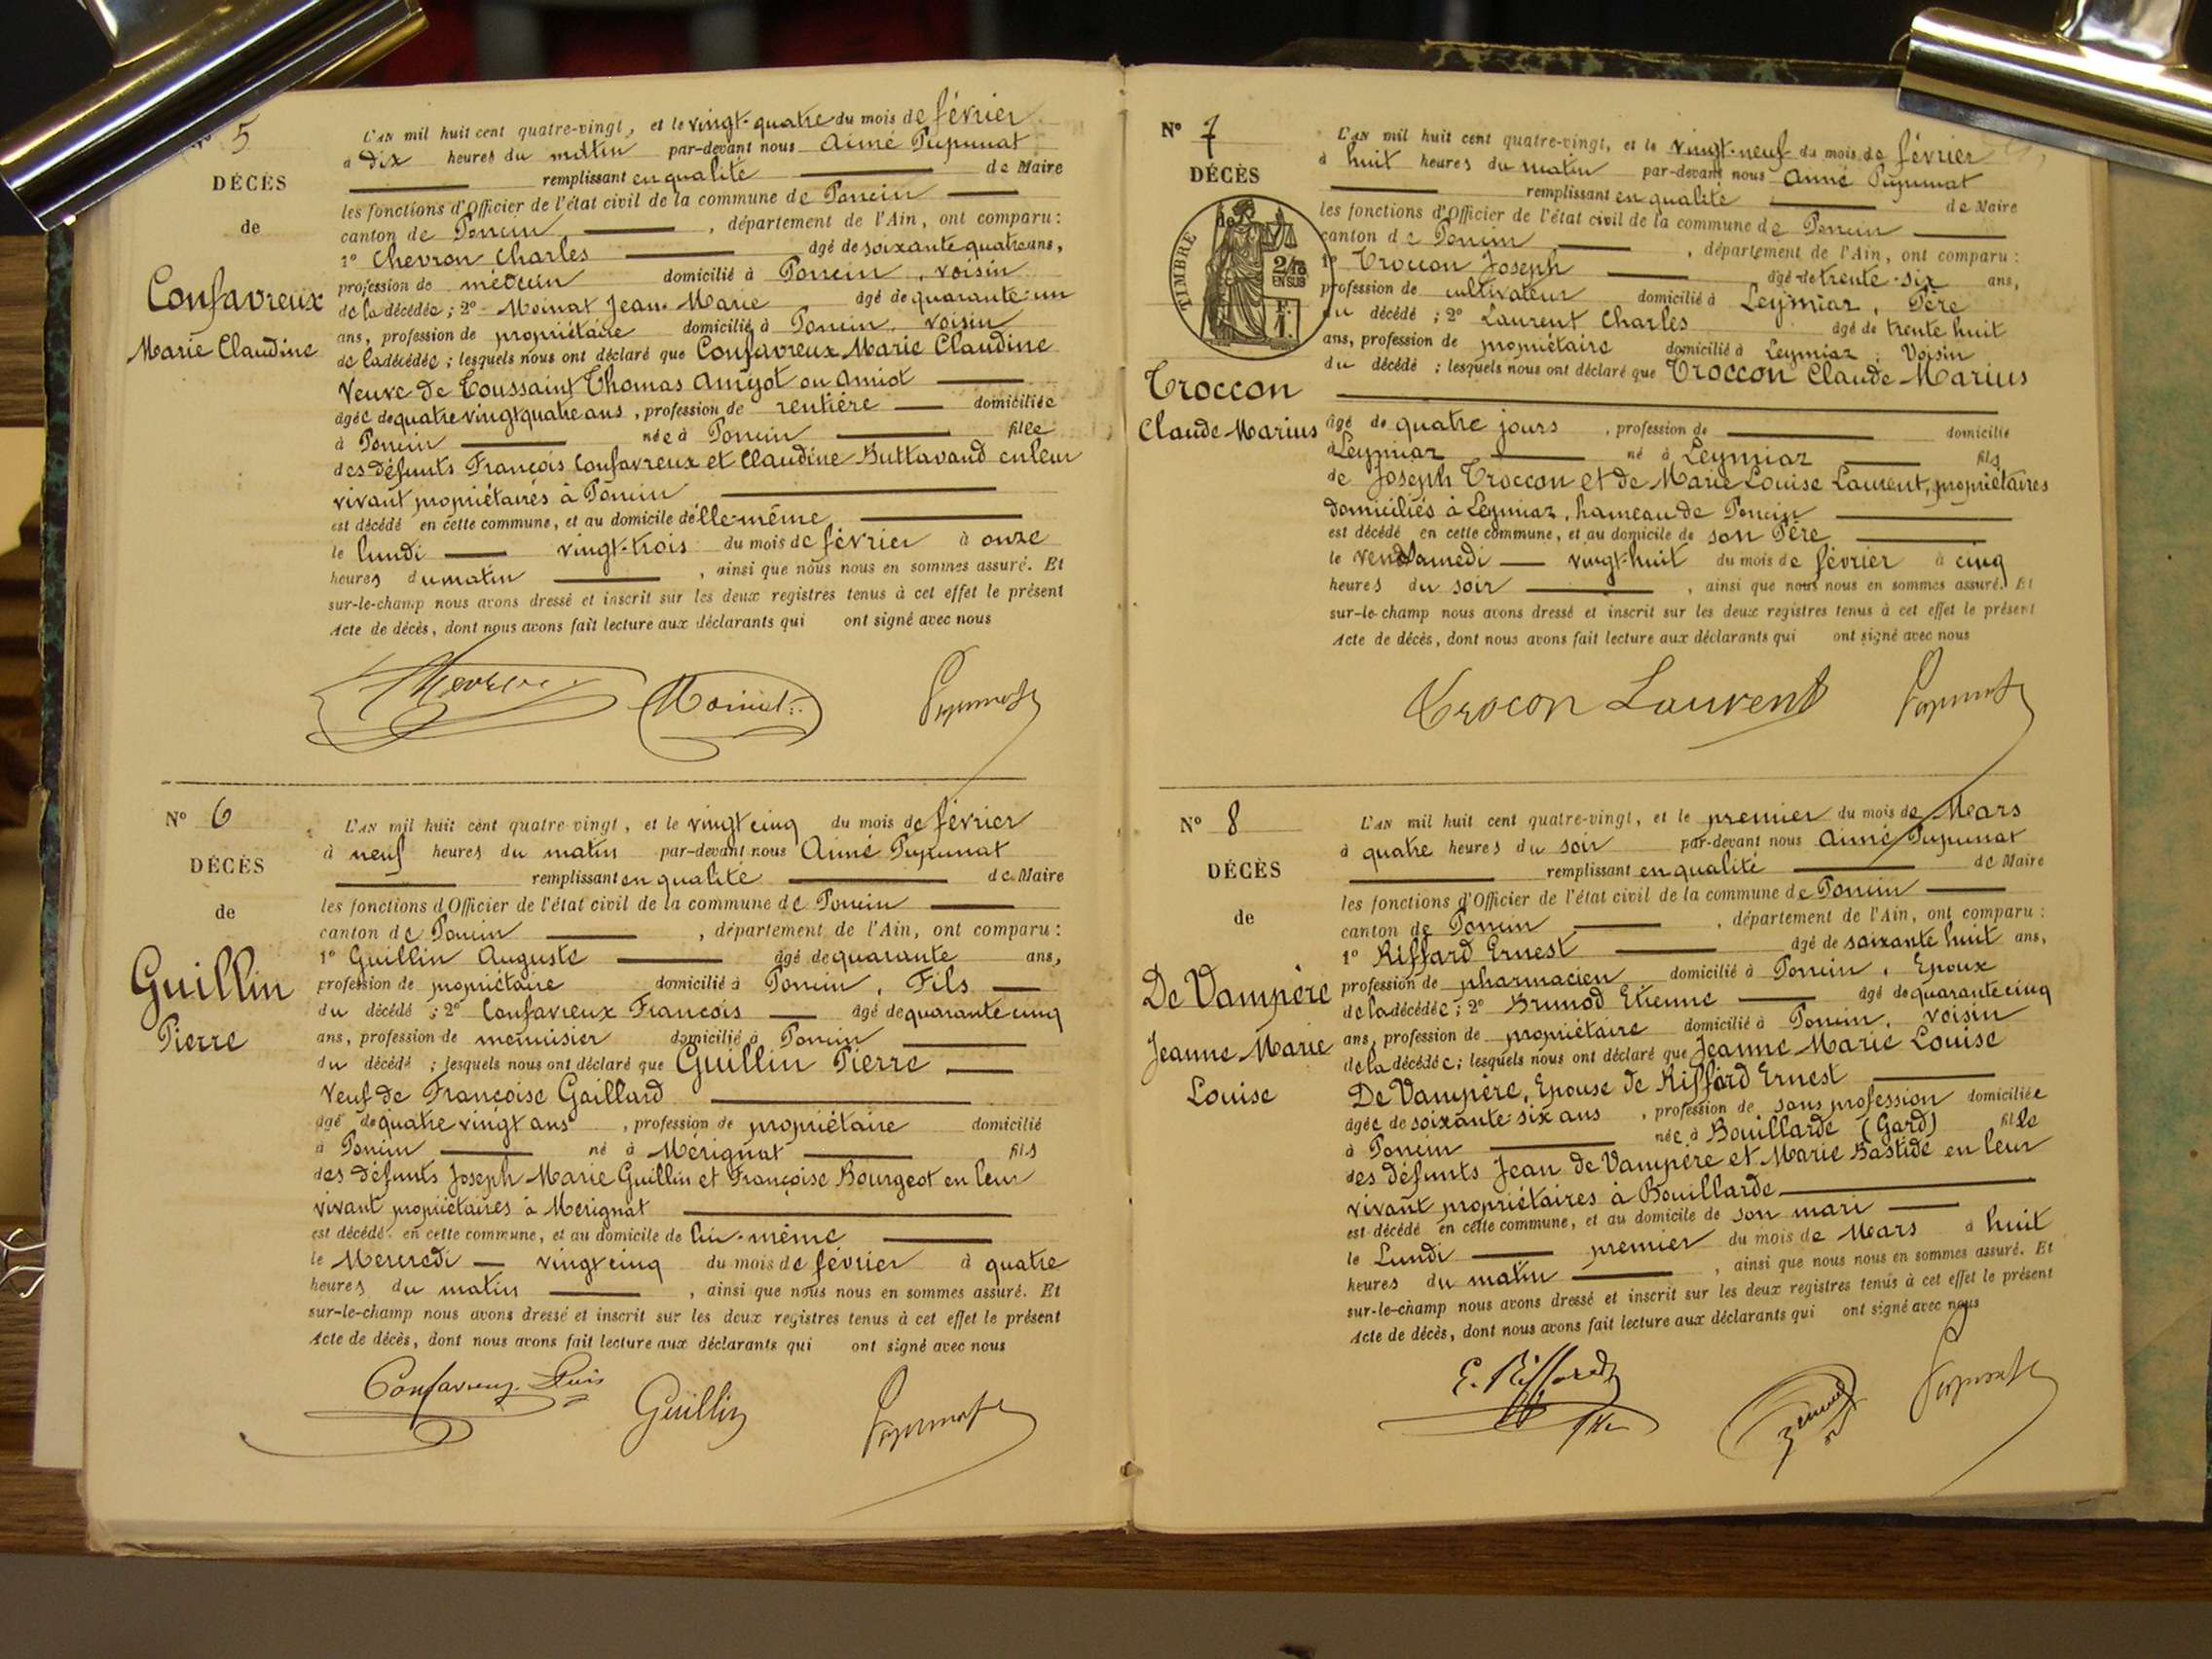 N° 5
DÉCÈS
de
Confavreux
Marie Claudine
L'AN mil huit cent quatre-vingt, et le vingt-quatre du mois de février
à dix heures du matin par-devant nous Aimé Pupunat
remplissant en qualité de Maire
les fonctions d'Officier de l'état civil de la commune de Poncin
canton de Poncin, département de l'Ain, ont comparu :
1° Chevron Charles âgé de soixante quatre ans,
profession de médecin domicilié à Poncin, voisin
de la décédée ; 2° Moinat Jean-Marie âgé de quarante-un
ans, profession de propriétaire domicilié à Poncin, voisin
de la décédée ; lesquels nous ont déclaré que Confavreux Marie Claudine
Veuve de Toussaint Thomas Amyot ou Amiot
âgée de quatre vingt quatre ans, profession de rentière domiciliée
à Poncin née à Poncin fille
des défunts François Confavreux et Claudine Buttavand en leur
vivant propriétaires à Poncin
est décédé en cette commune, et au domicile d'elle-même
le lundi vingt-trois du mois de février à onze
heures du matin, ainsi que nous nous en sommes assuré. Et
sur-le-champ nous avons dressé et inscrit sur les deux registres tenus à cet effet le présent
Acte de décès, dont nous avons fait lecture aux déclarants qui ont signé avec nous
Chevron Moinat Pupunat
N° 6
DÉCÈS
de
Guillin
Pierre
L'AN mil huit cent quatre-vingt, et le vingt cinq du mois de février
à neuf heures du matin par-devant nous Aimé Pupunat
remplissant en qualité de Maire
les fonctions d'Officier de l'état civil de la commune de Poncin
canton de Poncin, département de l'Ain, ont comparu :
1° Guillin Auguste âgé de quarante ans,
profession de propriétaire domicilié à Poncin, Fils
du décédé ; 2° Confavreux François âgé de quarante cinq
ans, profession de menuisier domicilié à Poncin
du décédé ; lesquels nous ont déclaré que Guillin Pierre
Veuf de Françoise Gaillard
âgé de quatre vingt ans, profession de propriétaire domicilié
à Poncin né à Mérignat fils
des défunts Joseph Marie Guillin et Françoise Bourgeot en leur
vivant propriétaires à Merignat
est décédé en cette commune, et au domicile de lui-même
le Mercredi vingt cinq du mois de février à quatre
heures du matin, ainsi que nous nous en sommes assuré. Et
sur-le-champ nous avons dressé et inscrit sur les deux registres tenus à cet effet le présent
Acte de décès, dont nous avons fait lecture aux déclarants qui ont signé avec nous
Confavreux Guillin Pupunat
N° 7
DÉCÈS
de
TIMBRE
2/10
EN SUS
F.
1.
Troccon
Claude Marius
L'AN mil huit cent quatre-vingt, et le vingt-neuf du mois de février
à huit heures du matin par-devant nous Aimé Pupunat
remplissant en qualité de Maire
les fonctions d'Officier de l'état civil de la commune de Poncin
canton de Poncin, département de l'Ain, ont comparu :
1° Troccon Joseph âgé de trente-six ans,
profession de cultivateur domicilié à Leymiaz, Père
du décédé ; 2° Laurent Charles âgé de trente huit
ans, profession de propriétaire domicilié à Leymiaz, Voisin
du décédé ; lesquels nous ont déclaré que Troccon Claude-Marius
âgé de quatre jours, profession de domicilié
à Leymiaz né à Leymiaz fils
de Joseph Troccon et de Marie Louise Laurent, propriétaires
domiciliés à Leymiaz, hameau de Poncin
est décédé en cette commune, et au domicile de son Père
le samedi vingt-huit du mois de février à cinq
heures du soir, ainsi que nous nous en sommes assuré. Et
sur-le-champ nous avons dressé et inscrit sur les deux registres tenus à cet effet le présent
Acte de décès, dont nous avons fait lecture aux déclarants qui ont signé avec nous
Trocon Laurent Pupunat
N° 8
DÉCÈS
de
De Vampère
Jeanne Marie
Louise
L'AN mil huit cent quatre-vingt, et le premier du mois de Mars
à quatre heures du soir par-devant nous Aimé Pupunat
remplissant en qualité de Maire
les fonctions d'Officier de l'état civil de la commune de Poncin
canton de Poncin, département de l'Ain, ont comparu :
1° Riffard Ernest âgé de soixante huit ans,
profession de pharmacien domicilié à Poncin, Epoux
de la décédée ; 2° Brunod Etienne âgé de quarante cinq
ans, profession de propriétaire domicilié à Poncin, voisin
de la décédée ; lesquels nous ont déclaré que Jeanne Marie Louise
De Vampère, Epouse de Riffard Ernest
âgée de soixante-six ans, profession de sans profession domiciliée
à Poncin née à Bouillarde (Gard) fille
des défunts Jean de Vampère et Marie Bastide en leur
vivant propriétaires à Bouillarde
est décédé en cette commune, et au domicile de son mari
le Lundi premier du mois de Mars à huit
heures du matin, ainsi que nous nous en sommes assuré. Et
sur-le-champ nous avons dressé et inscrit sur les deux registres tenus à cet effet le présent
Acte de décès, dont nous avons fait lecture aux déclarants qui ont signé avec nous
E. Riffard Pupunat